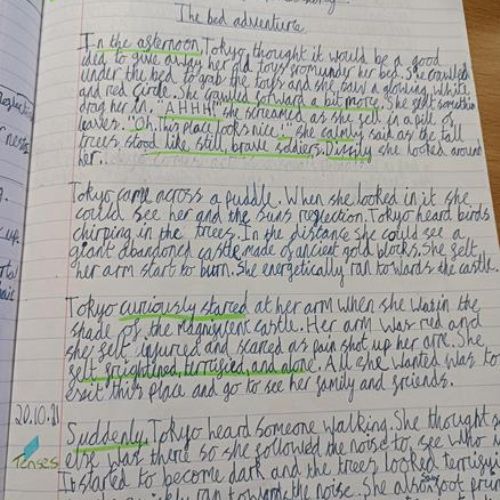 The bed adventure
In the asternoon, Tokyo thought it would be a good
idea to give away her old toys sromunder her bed. She crawled
under the bed to grab the toys and she saw a glowing, white
and red circle. She crawled forward a bit more. She selt somethin
drag her in. "AHHH!" she screamed as she sell in a pile of
leaves. "Oh. This place looks nice." she calmly said as the tall
trees stood like still, brave soldiers. Dizzily she looked around
her..
Tokyo came across a puddle. When she looked in it she
could see her and the suns reflection. Tokyo heard birds
chirping in the trees. In the distance she could see a
giant abandoned castle, made of ancient gold blocks. She selt
her arm start to burn. She energetically ran towards the castle.
Tokyo curiously stared at her arm when she was in the
shade of the magniscent castle. Her arm was red and
she selt injured and scared as pain shot up her arm. She
selt srightened, terrisied, and alone. All she wanted was to
exit this place and go to see her family and sriends.
20.10.21
Suddenly, Tokyo heard someone walking. She thought s
Tenses
else was there so she followed the noise to see who
It stared to become dark and the trees looked terrisyi
ran toward the noise. She also foot prin